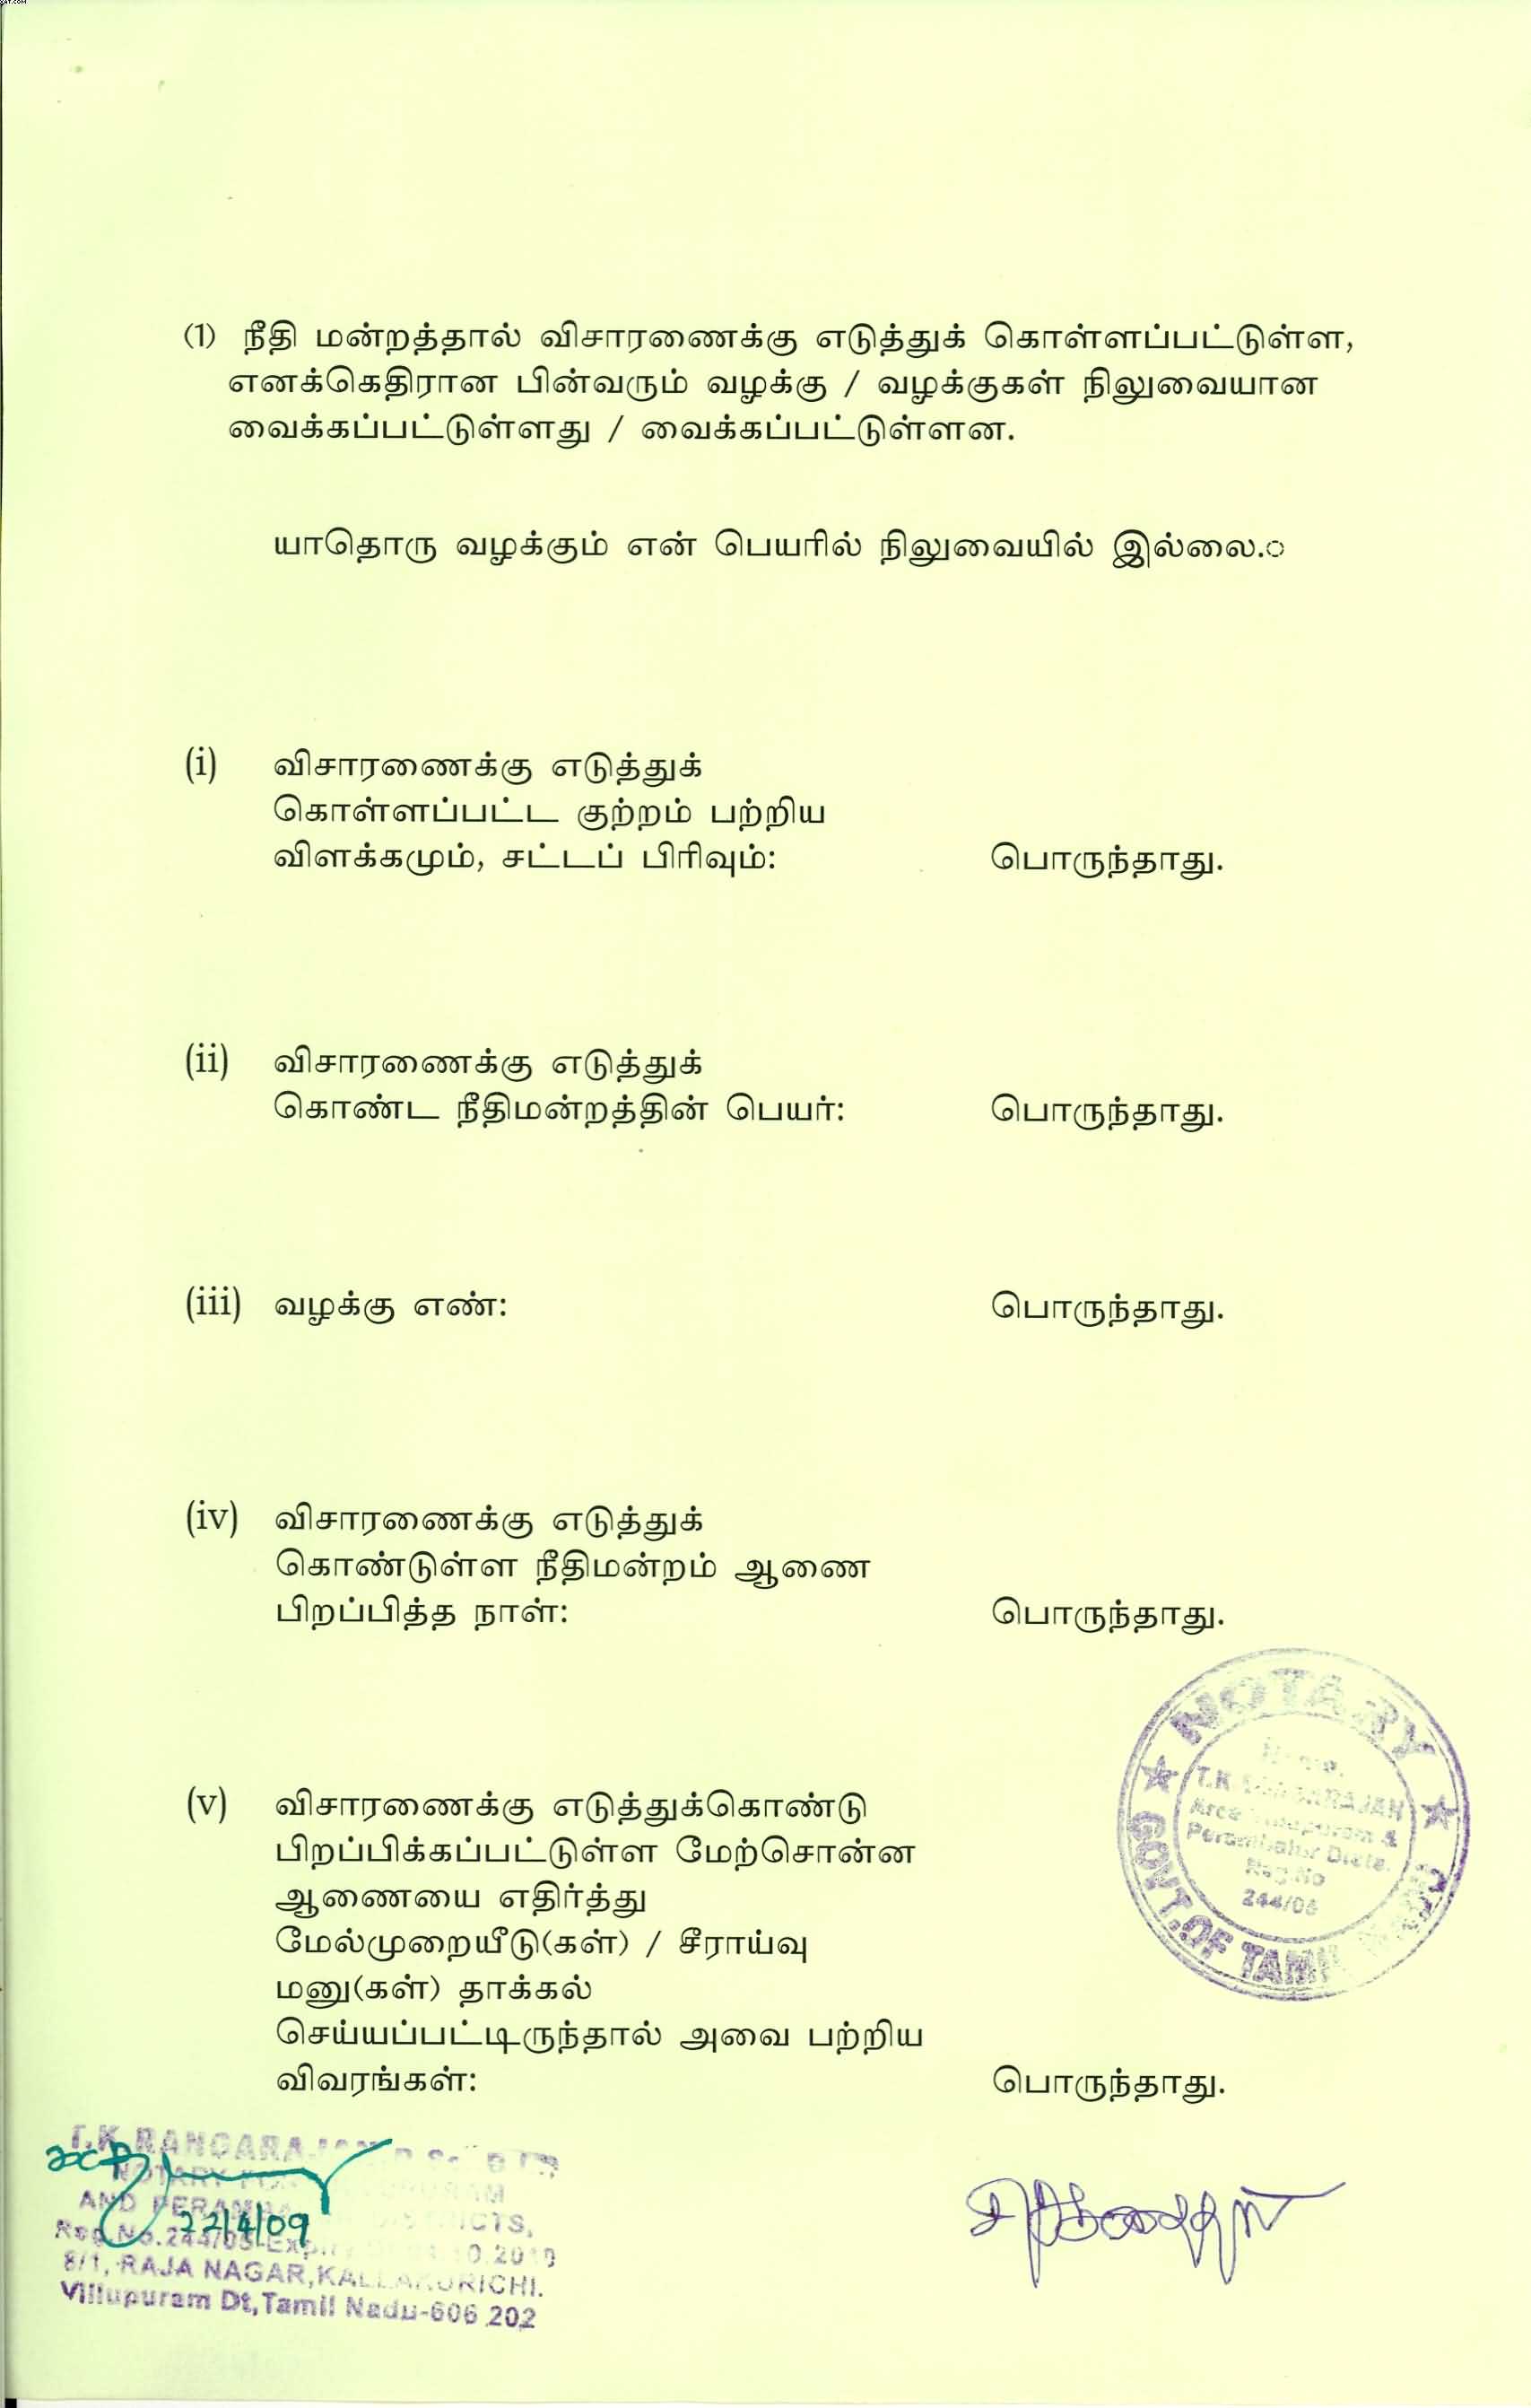 (1) நீதி மன்றத்தால் விசாரணைக்கு எடுத்துக் கொள்ளப்பட்டுள்ள,
எனக்கெதிரான பின்வரும் வழக்கு / வழக்குகள் நிலுவையான
வைக்கப்பட்டுள்ளது / வைக்கப்பட்டுள்ளன.
யாதொரு வழக்கும் என் பெயரில் நிலுவையில் இல்லை.
(i) விசாரணைக்கு எடுத்துக்
கொள்ளப்பட்ட குற்றம் பற்றிய
விளக்கமும், சட்டப் பிரிவும்: பொருந்தாது.
(ii) விசாரணைக்கு எடுத்துக்
கொண்ட நீதிமன்றத்தின் பெயர்: பொருந்தாது.
(iii) வழக்கு எண்: பொருந்தாது.
(iv) விசாரணைக்கு எடுத்துக்
கொண்டுள்ள நீதிமன்றம் ஆணை
பிறப்பித்த நாள்: பொருந்தாது.
(v) விசாரணைக்கு எடுத்துக்கொண்டு
பிறப்பிக்கப்பட்டுள்ள மேற்சொன்ன
ஆணையை எதிர்த்து
மேல்முறையீடு(கள்) / சீராய்வு
மனு(கள்) தாக்கல்
செய்யப்பட்டிருந்தால் அவை பற்றிய
விவரங்கள்: பொருந்தாது.
NOTARY
Reg.No
244/05
GOVT.OF TAMIL
T.K.RANGARAJAN
NOTARY
AND
22/4/09
Reg.No.244/05
8/1, RAJA NAGAR, KALLAKURICHI.
Villupuram Dt, Tamil Nadu-606 202